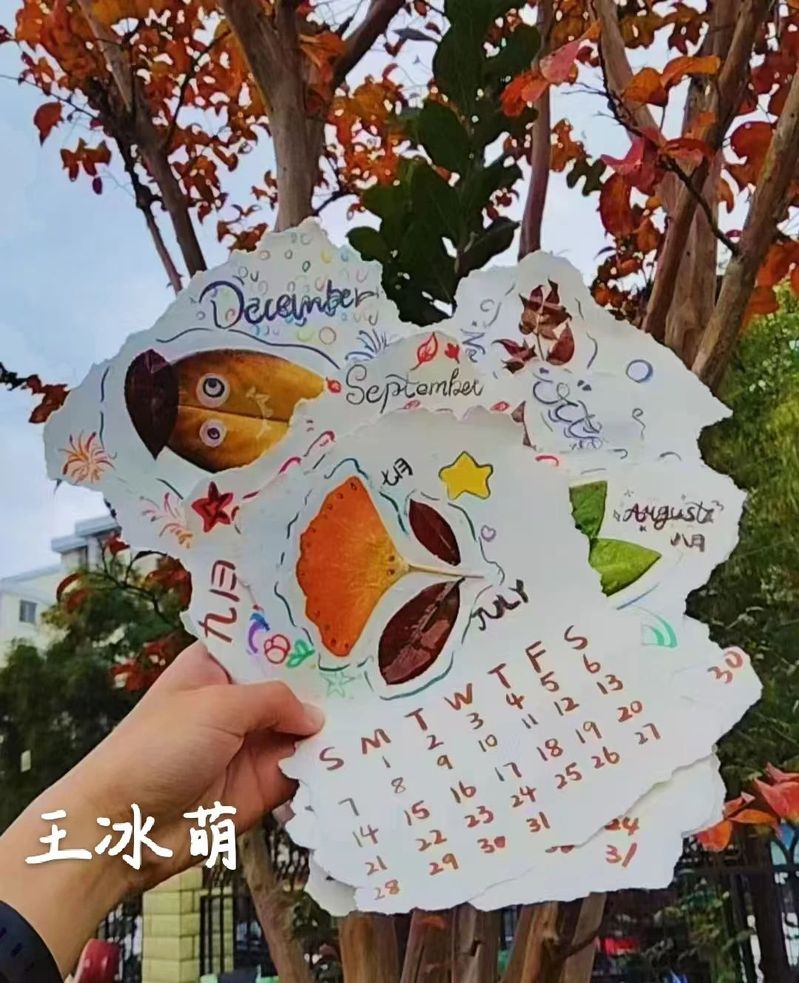 December
September
Oct
七月
August
八月
九月
July
S M T W T F S
1 2 3 4 5 6
7 8 9 10 11 12 13
14 15 16 17 18 19 20
21 22 23 24 25 26 27
28 29 30 31
30
24
31
王冰萌